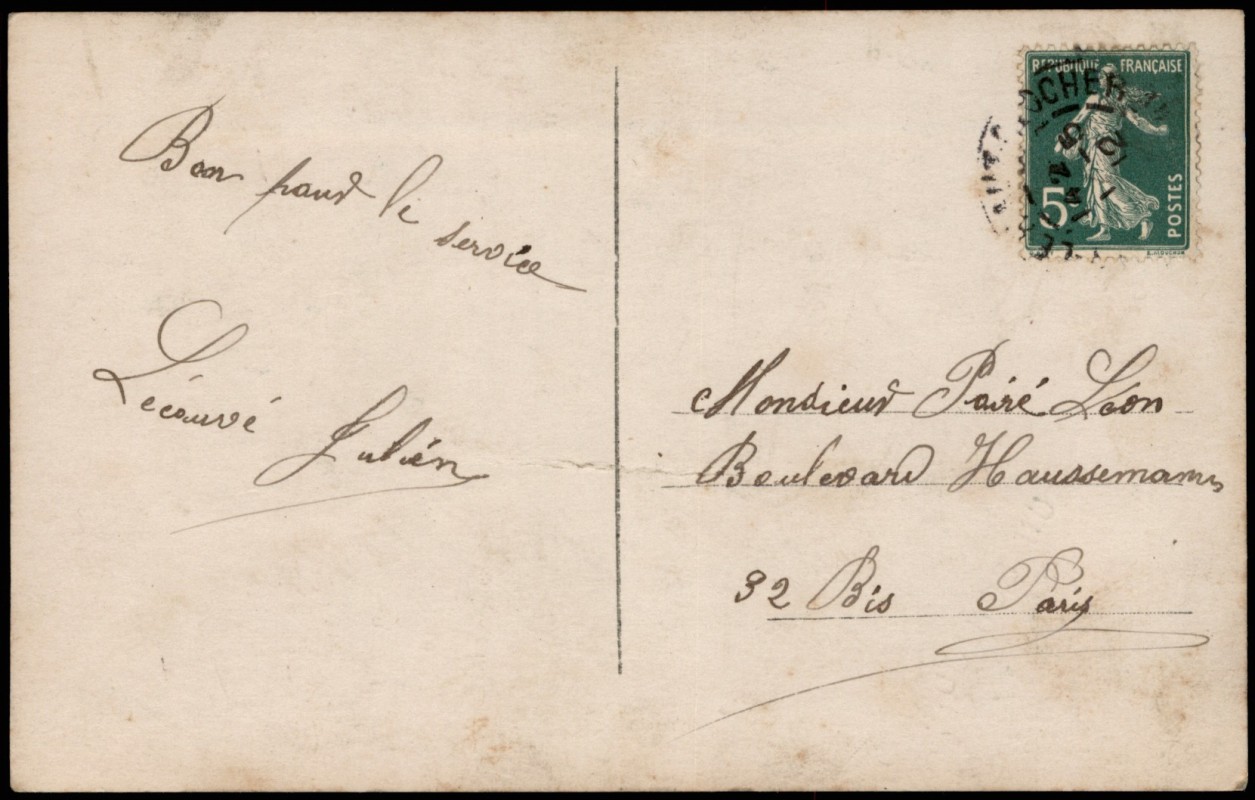 Bon pour le service
Lécouvé Julien
REPUBLIQUE FRANÇAISE
5c
POSTES
OCHER
Monsieur Poiré Léon
Boulevard Haussemann
32 Bis Paris